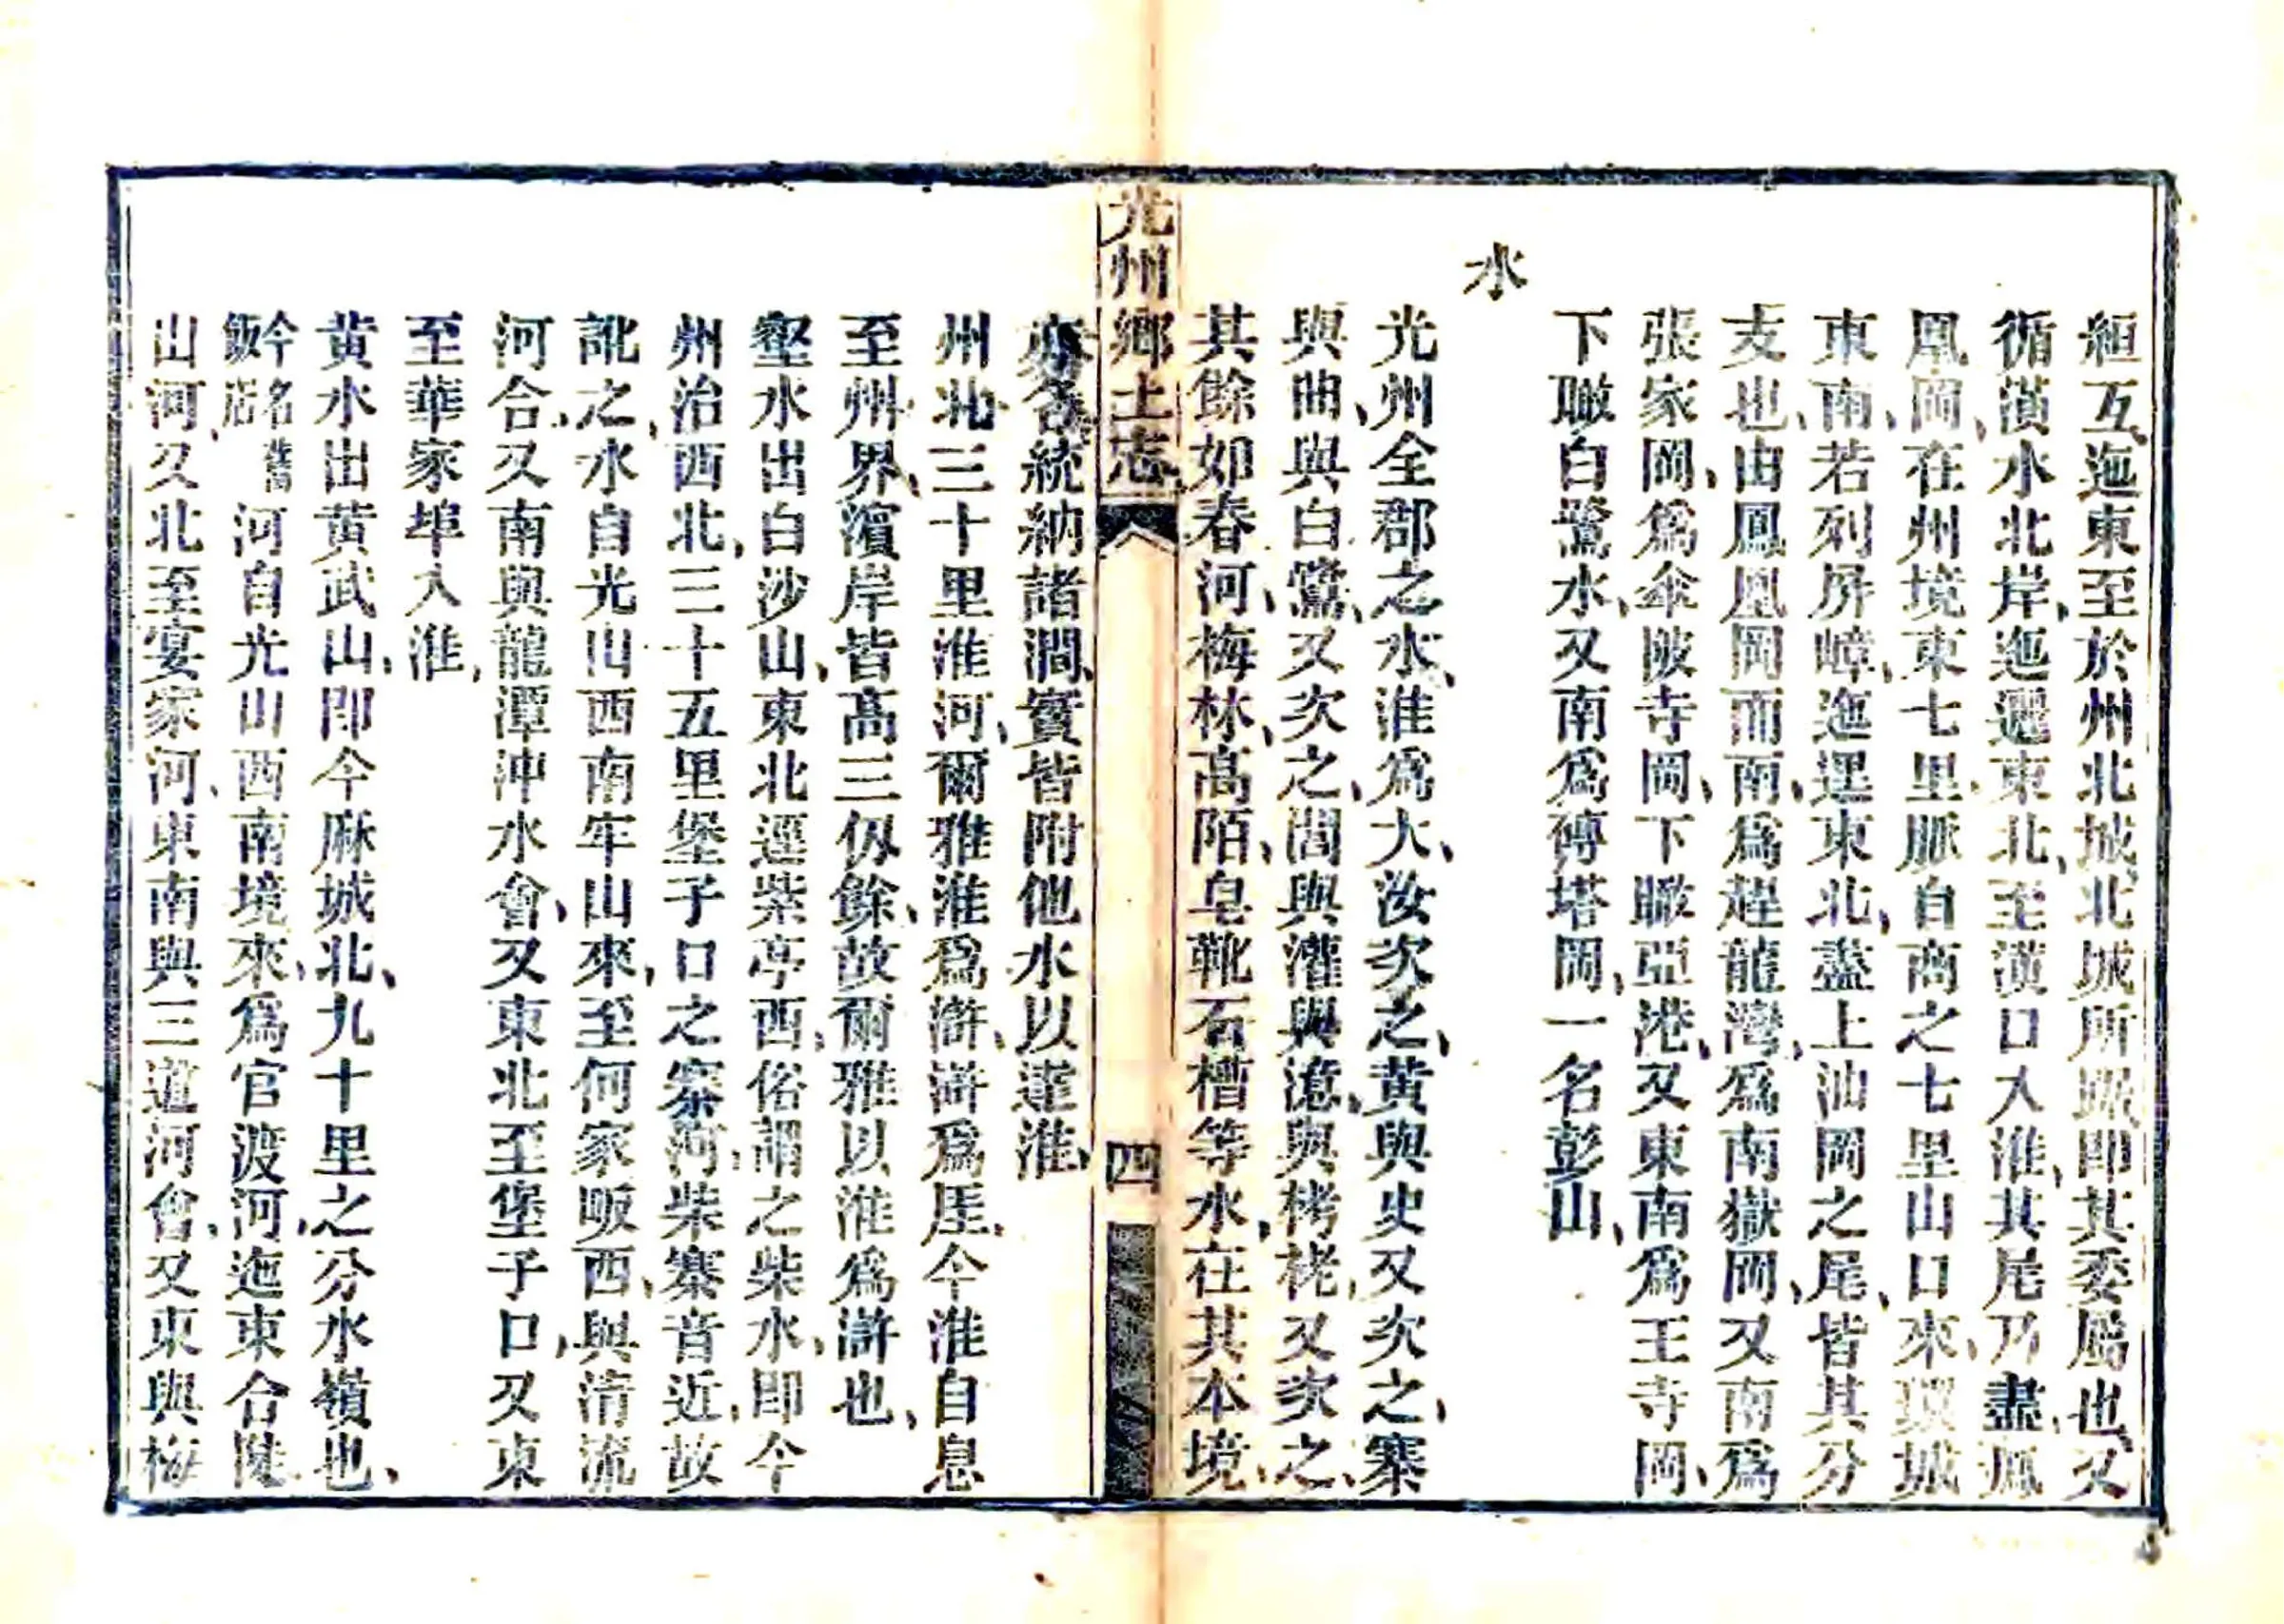 絙互、迤東至於州北城、北城所踞、即其委屬也、又
循潢水北岸、迤邐東北、至潢口入淮、其尾乃盡、鳳
凰岡、在州境東七里、脈自商之七里山口來、環城
東南、若列屏嶂、迤邐東北、盡上油岡之尾、皆其分
支也、由鳳凰岡而南、爲趕龍灣、爲南嶽岡、又南爲
張家岡、爲傘陂寺岡、下瞰亞港、又東南爲王寺岡、
下瞰白鷺水、又南爲傅塔岡、一名彭山、
水
光州全郡之水、淮爲大、汝次之、黃與史又次之、寨
與曲、與白鷺、又次之、閭與灌與澺、與栲栳、又次之、
其餘如春河、梅林、高陌、皂靴石槽等水、在其本境、
光州鄉土志
四
亦各統納諸澗、實皆附他水以達淮、
州北三十里淮河、爾雅淮爲滸、滸爲厓、今淮自息
至州界、濱岸皆高三仭餘、故爾雅以淮爲滸也、
壑水出白沙山、東北逕柴亭西、俗謂之柴水、即今
州治西北、三十五里堡子口之寨河、柴寨音近、故
訛之、水自光山西南牢山來、至何家畈西、與清流
河合、又南與龍潭沖水會、又東北至堡子口、又東
至華家埠入淮、
黃水出黃武山、即今麻城北、九十里之分水嶺也、
今名舊飯店河自光山西南境來、爲官渡河、迤東合陡
出河、又北至宴家河、東南與三道河會、又東與梅